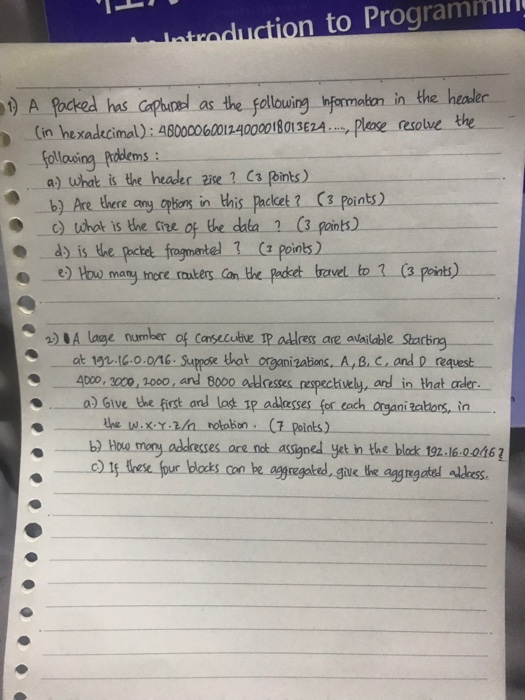 Introduction to Programmin
1) A Packed has captured as the following information in the header
(in hexadecimal): 480000600124000018013E24...., Please resolve the
following problems :
a.) What is the header zise ? (3 Points)
b) Are there any options in this packet ? (3 points)
c) What is the size of the data ? (3 points)
d.) is the packet fragmented ? (3 points)
e.) How many more routers can the packet travel to ? (3 points)
2.) A lage number of consecutive IP address are available starting
at 192.16.0.0/16. Suppose that organizations, A, B, C, and D request
4000, 3000, 2000, and 8000 addresses respectively, and in that order.
a.) Give the first and last IP addresses for each organizations, in
the W.X.Y.Z/n notation. (7 points)
b) How many addresses are not assigned yet in the block 192.16.0.0/16 ?
c) If these four blocks can be aggregated, give the aggregated address.